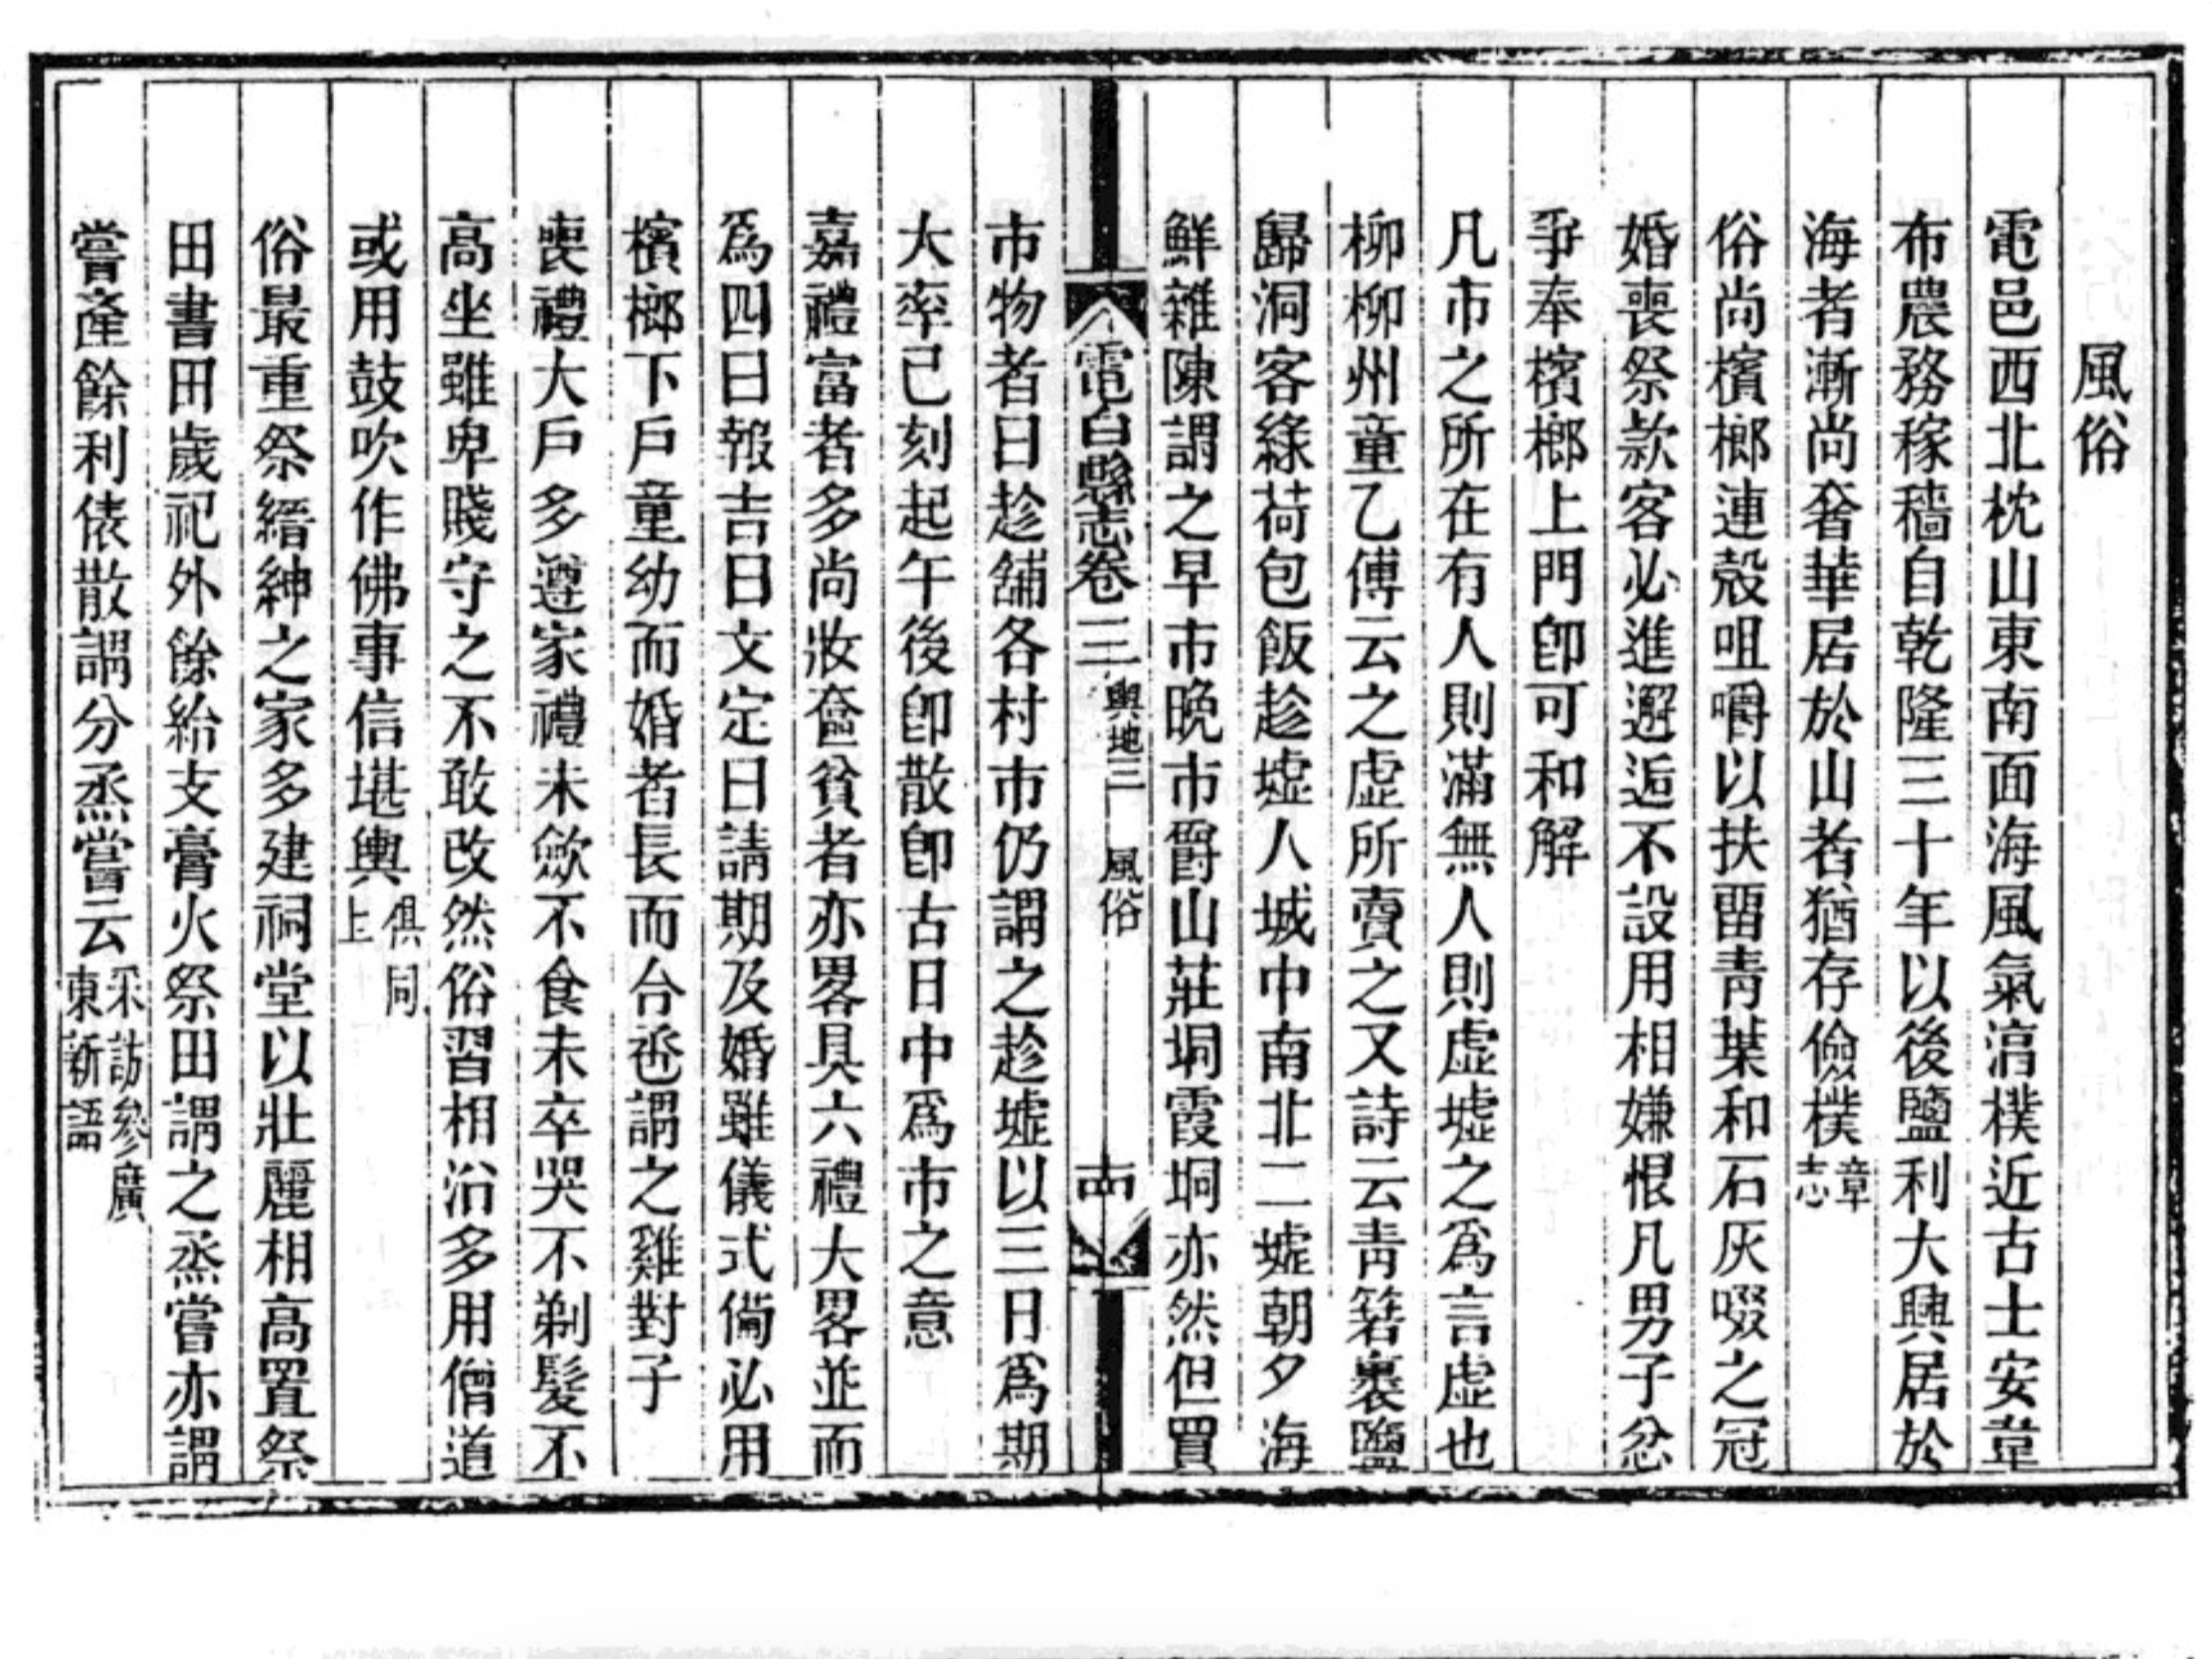 風俗
電邑西北枕山東南面海風氣湻樸近古士安韋
布農務稼穡自乾隆三十年以後鹽利大興居於
海者漸尚奢華居於山者猶存儉樸章志
俗尚檳榔連殼咀嚼以扶留青葉和石灰啜之冠
婚喪祭款客必進邂逅不設用相嫌恨凡男子忿
爭奉檳榔上門卽可和解
凡市之所在有人則滿無人則虛墟之爲言虛也
柳柳州童乙傅云之虛所賣之又詩云青箬裹鹽
歸洞客綠荷包飯趁墟人城中南北二墟朝夕海
鮮雜陳謂之早市晚市爵山莊垌霞垌亦然但買
電白縣志卷三 輿地三 風俗 西
市物者曰趁舖各村市仍謂之趁墟以三日爲期
大率已刻起午後卽散卽古日中爲市之意
嘉禮富者多尚妝奩貧者亦畧具六禮大畧並而
爲四曰報吉曰文定曰請期及婚雖儀式備必用
檳榔下戶童幼而婚者長而合卺謂之雞對子
喪禮大戶多遵家禮未歛不食未卒哭不剃髮不
高坐雖卑賤守之不敢改然俗習相沿多用僧道
或用鼓吹作佛事信堪輿俱同上
俗最重祭縉紳之家多建祠堂以壯麗相高置祭
田書田歲祀外餘給支膏火祭田謂之烝嘗亦謂
嘗產餘利俵散謂分烝嘗云采訪參廣東新語